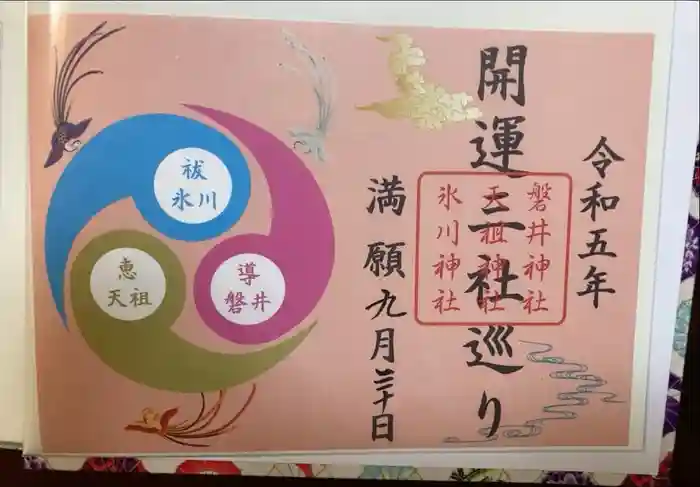 令和五年
開運三社巡り
磐井神社
天祖神社
氷川神社
満願九月三十日
祓
氷川
導
磐井
恵
天祖